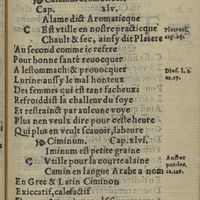 Cap. xlv.
Alame dict Aromaticque
C Est vtille en nostre practicque
Chault & sec, ainsy dit Plaiere
Au second comme ie refere
Pour bonne santé reuocquer
A lestommach & prouocquer
Lurine aussy le mal honteux
Des femmes qui est tant facheux
Refroiddist la challeur du foye
Et restrainct par aulcune voye
Plus nen veulx dire pour ceste heure
Qui plus en veult scauoir, labeure
Ciminum. Cap. xlvi.
Iminum est petite graine
C Vtille pour la courte alaine
Camin en langue Arabe a nom
En Grec & Latin Ciminon
Exiccatif, calefactif
Plateari.
Dios. l. 1.
ca. 17.
Auctor
pandec.